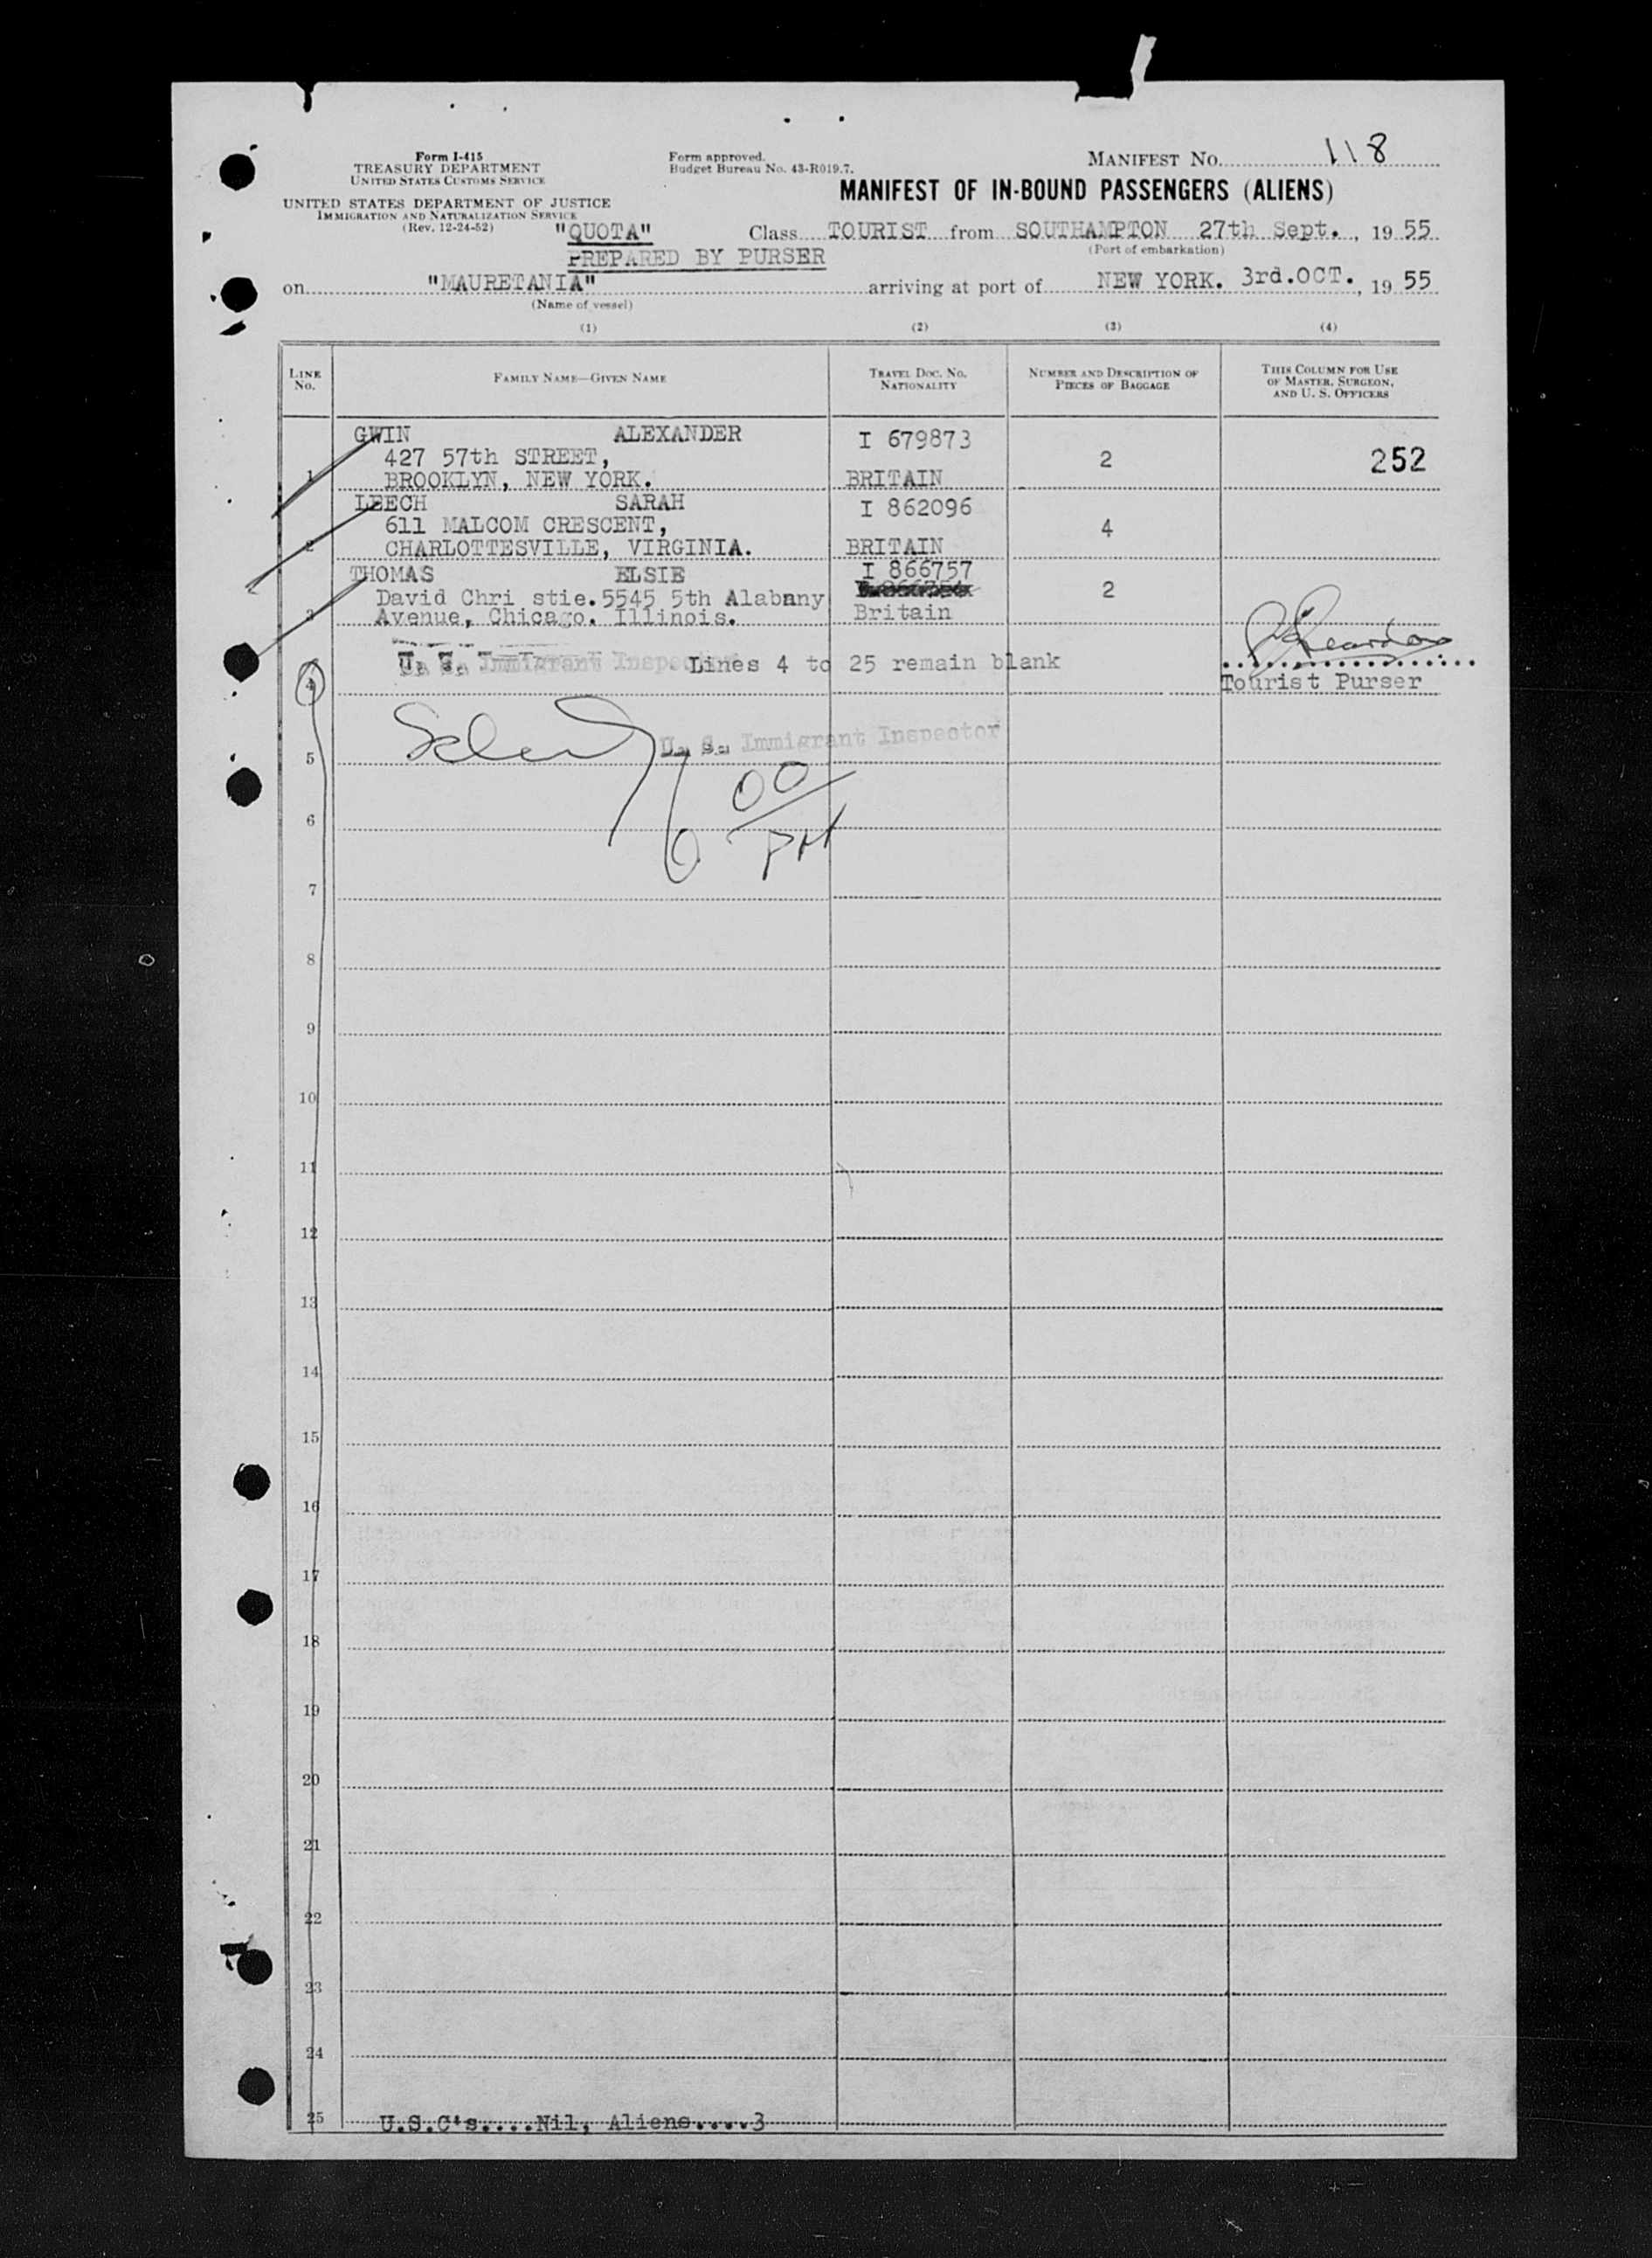 Form I-415
TREASURY DEPARTMENT
UNITED STATES CUSTOMS SERVICE
UNITED STATES DEPARTMENT OF JUSTICE
IMMIGRATION AND NATURALIZATION SERVICE
(Rev. 12-24-52)
Form approved.
Budget Bureau No. 43-R019.7.
MANIFEST NO. 118
MANIFEST OF IN-BOUND PASSENGERS (ALIENS)
"QUOTA" Class TOURIST from SOUTHAMPTON 27th Sept., 19 55
(Port of embarkation)
PREPARED BY PURSER
on "MAURETANIA" arriving at port of NEW YORK. 3rd.OCT., 19 55
(Name of vessel)
(1) (2) (3) (4)
LINE NO. FAMILY NAME—GIVEN NAME TRAVEL DOC. NO. NATIONALITY NUMBER AND DESCRIPTION OF PIECES OF BAGGAGE THIS COLUMN FOR USE OF MASTER, SURGEON, AND U. S. OFFICERS
GWIN ALEXANDER I 679873
427 57th STREET, 2 252
1 BROOKLYN, NEW YORK. BRITAIN
LEECH SARAH I 862096
611 MALCOM CRESCENT, 4
2 CHARLOTTESVILLE, VIRGINIA. BRITAIN
THOMAS ELSIE I 866757
David Chri stie.5545 5th Alabany 2
3 Avenue, Chicago. Illinois. Britain
U. S. Immigrant Inspector Lines 4 to 25 remain blank
4 Tourist Purser
U. S. Immigrant Inspector
5
6 00
6 PM
7
8
9
10
11
12
13
14
15
16
17
18
19
20
21
22
23
24
25 U.S.C's....Nil, Aliens....3